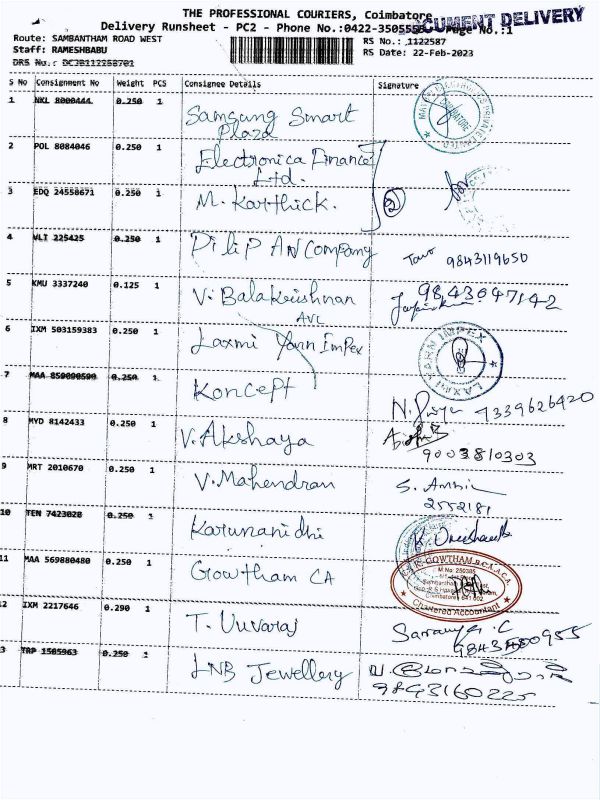 THE PROFESSIONAL COURIERS, Coimbatore
CUMENT DELIVERY
Delivery Runsheet - PC2 - Phone No.:0422-3505555 Page No.:1
Route: SAMBANTHAM ROAD WEST
RS No.: 1122587
Staff: RAMESHBABU
RS Date: 22-Feb-2023
DRS No.: DCJB112258701
S No Consignment No Weight PCS Consignee Details Signature
1 NKL 8000444. 0.250 1 Samsung Smart
Plaza
2 POL 8084046 0.250 1 Electronica Finance
Ltd.
3 EDQ 24558671 0.250 1 M. Karthick. 2
4 VLT 225425 0.250 1 Dilip AN Company 9843119650
5 KMU 3337240 0.125 1 V. Balakrishnan 9843047142
AVL
6 IXM 503159383 0.250 1 Laxmi Yarn Impex
LAXMI KARN IMPEX
7 MAA 859090590 0.250 1 Koncept 7339626420
8 MYD 8142433 0.250 1 V. Akshaya
9003810303
9 MRT 2010670 0.250 1 V. Mahendran S.
2552181
10 TEN 7423028 0.250 1 Karunanidhi
11 MAA 569880480 0.250 1 Growtham CA
GOWTHAM B.C.A., A.C.A.
M.No: 250385
Chartered Accountant
12 IXM 2217646 0.290 1 T. Uvaraj
13 TRP 1505963 0.250 1 LNB Jewellery
9893160225